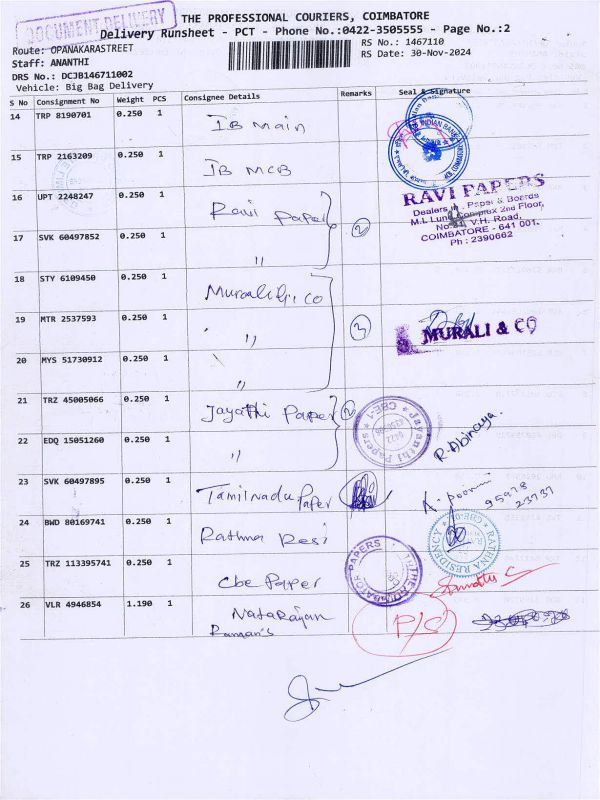 DOCUMENT DELIVERY
THE PROFESSIONAL COURIERS, COIMBATORE
Delivery Runsheet - PCT - Phone No.:0422-3505555 - Page No.:2
Route: OPANAKARASTREET
RS No.: 1467110
Staff: ANANTHI
RS Date: 30-Nov-2024
DRS No.: DCJB146711002
Vehicle: Big Bag Delivery
S No Consignment No Weight PCS Consignee Details Remarks Seal & Signature
14 TRP 8190701 0.250 1 IB Main
15 TRP 2163209 0.250 1 IB MCB
INDIAN BANK
16 UPT 2248247 0.250 1 Ravi Paper
17 SVK 60497852 0.250 1 "
2
RAVI PAPERS
Dealers in Paper & Boards
Complex 2nd Floor,
V.H. Road,
COIMBATORE - 641 001.
Ph : 2390662
18 STY 6109450 0.250 1
19 MTR 2537593 0.250 1 "
20 MYS 51730912 0.250 1 "
3
MURALI & CO
21 TRZ 45005066 0.250 1 Jayathi Paper 2
22 EDQ 15051260 0.250 1 "
Jayanthi Papers CBE-1
0422
R. Abinaya.
23 SVK 60497895 0.250 1 Tamilnadu Paper
A. Poorni
95978
23737
24 BWD 80169741 0.250 1 Rathna Resi
RATHNA RESIDENCY
25 TRZ 113395741 0.250 1 Cbe Paper
PAPERS
26 VLR 4946854 1.190 1 Natarajan
Raman's
P/C